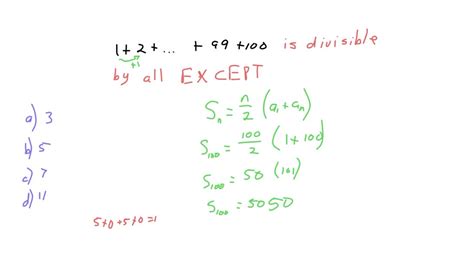 1+2+... + 99+100 is divisible
+1
by all EXCEPT
a) 3
b) 5
c) 7
d) 11
Sₙ = n/2 (a₁+aₙ)
S₁₀₀ = 100/2 (1+100)
S₁₀₀ = 50 (101)
S₁₀₀ = 5050
5+0+5+0=1